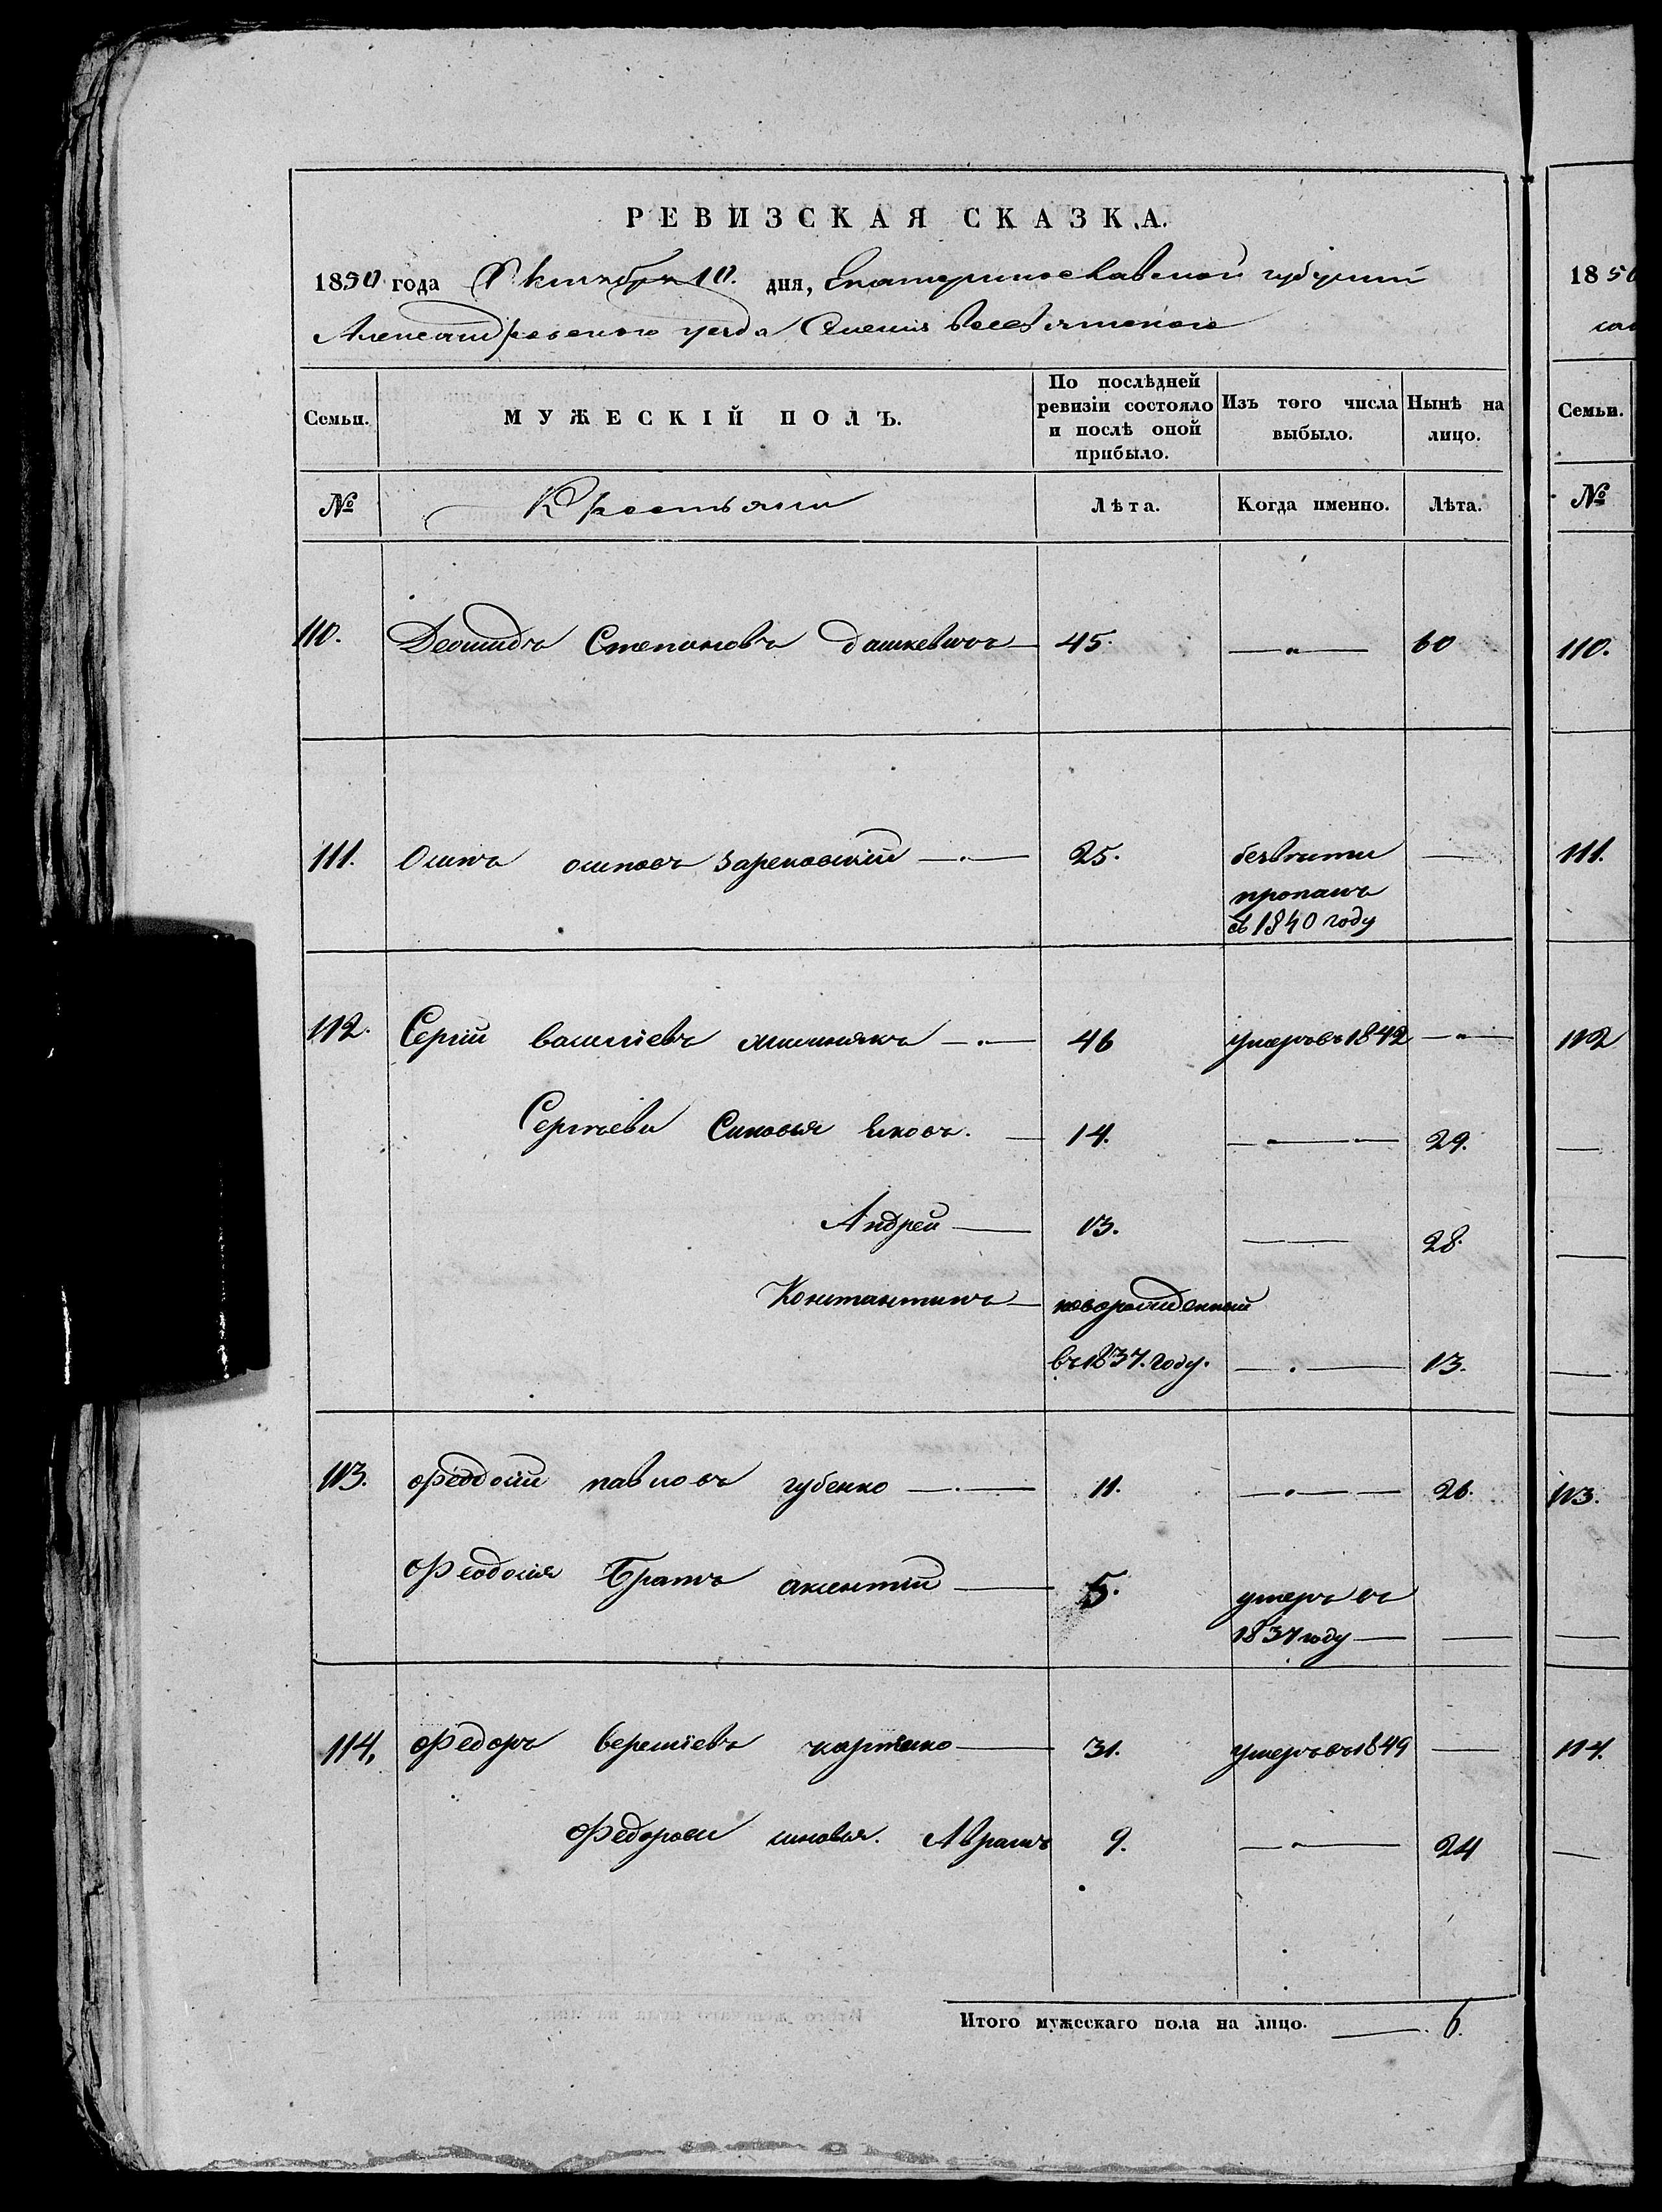 РЕВИЗСКАЯ СКАЗКА.
1850 года Октября 10. дня, Екатеринославской губернии
Александровского уезда Селения Всесвятского
Семьи.
МУЖЕСКІЙ ПОЛЪ.
По послѣдней ревизіи состояло и послѣ оной прибыло.
Изъ того числа выбыло.
Нынѣ на лицо.
№
Крестьяни
Лѣта.
Когда именно.
Лѣта.
110. Степановъ дашкевичъ 45. 60
111. Осипъ осиповъ 25. безвѣсти
пропалъ
въ 1840 году
112. Сергій василіевъ 46 умеръ въ 1842
Сергѣеви Синовья Яковъ. 14. 29.
Андрей 13. 28.
Константинъ новорожденный
въ 1837. году. 13.
113. Феодосій павловъ губенко 11. 26.
Феодосія Братъ аксентий 5. умеръ въ
1837 году
114. Федоръ 31. умеръ въ 1849
Федорови синовья. Аврамъ 9. 24
Итого мужескаго пола на лицо. 6.
1850
Семьи.
№
110.
111.
112
113.
114.